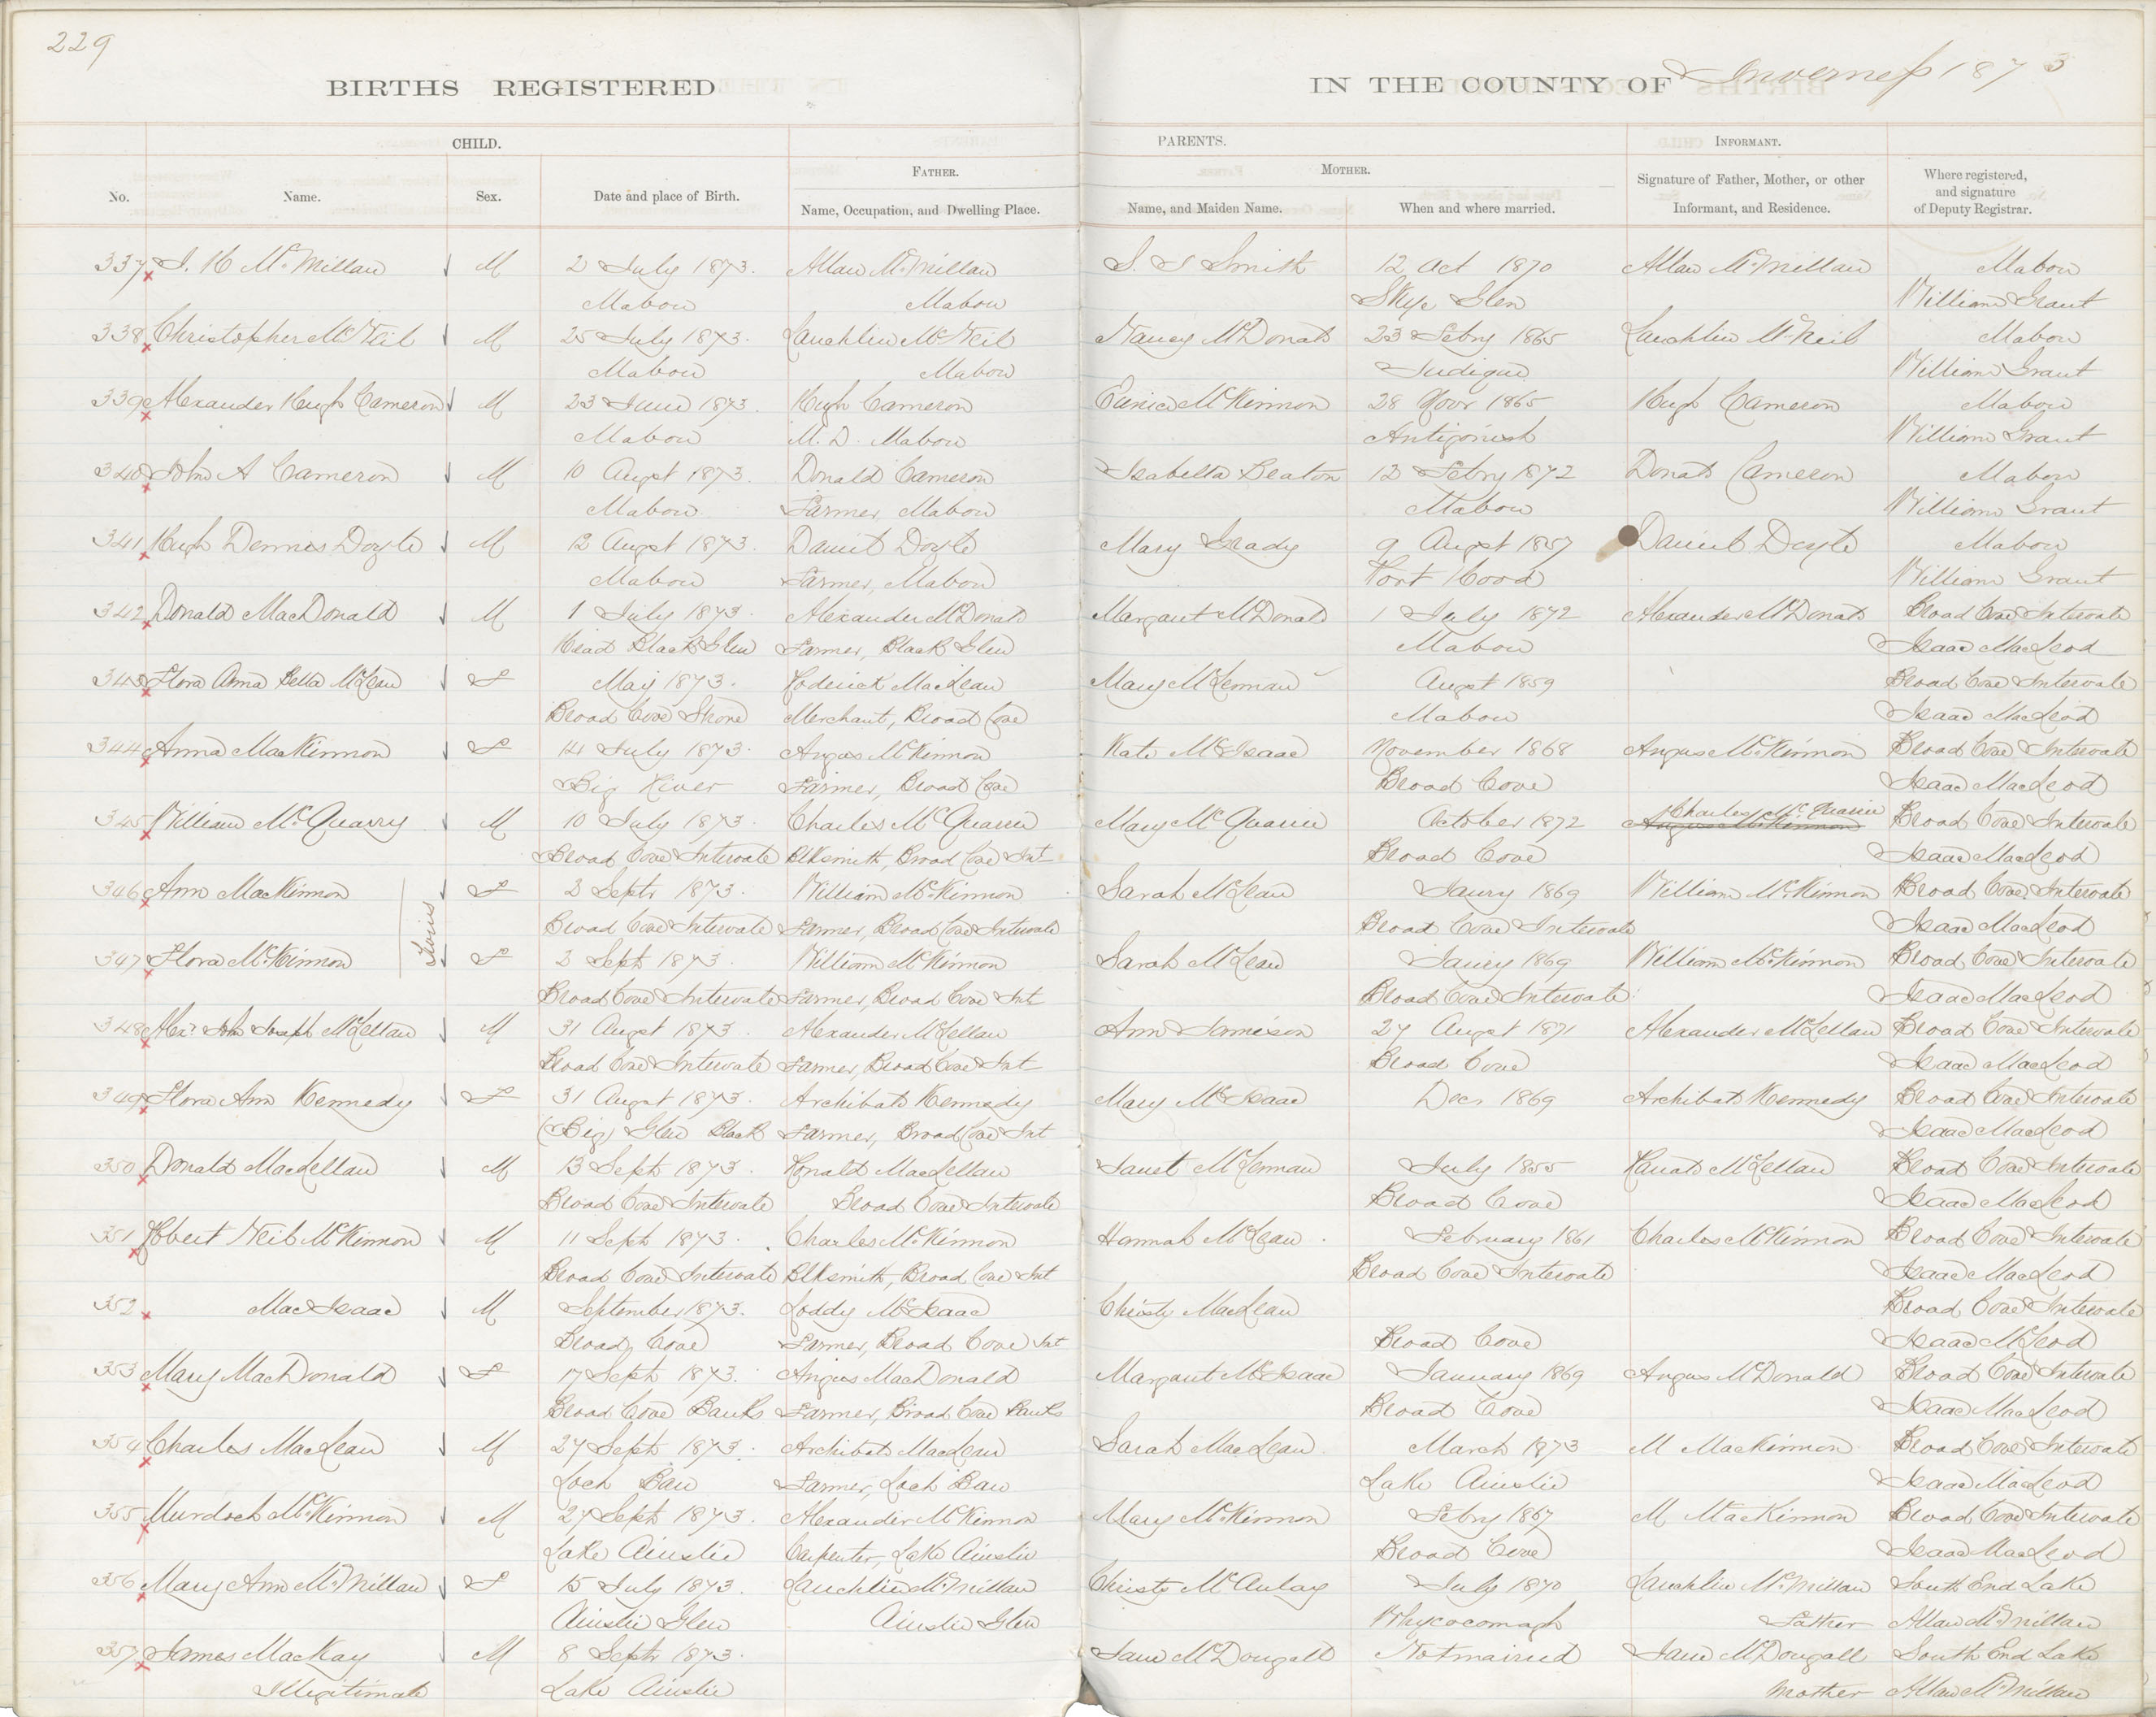 229
BIRTHS REGISTERED IN THE COUNTY OF Inverness 1873
CHILD. PARENTS. INFORMANT.
FATHER. MOTHER.
No. Name. Sex. Date and place of Birth. Name, Occupation, and Dwelling Place. Name, and Maiden Name. When and where married. Signature of Father, Mother, or other Informant, and Residence. Where registered, and signature of Deputy Registrar.
337 J. H McMillan M 2 July 1873. Allan McMillan S. J Smith 12 Oct 1870 Allan McMillan Mabou
Mabou Mabou Skye Glen William Grant
338 Christopher McNeil M 25 July 1873. Lauchlin McNeil Nancy McDonald 23 Febry 1865 Lauchlin McNeil Mabou
Mabou Mabou Judique William Grant
339 Alexander Hugh Cameron M 23 June 1873. Hugh Cameron Eunice McKinnon 28 Novr 1865 Hugh Cameron Mabou
Mabou M. D. Mabou Antigonish William Grant
340 John A Cameron M 10 Augst 1873. Donald Cameron Isabella Beaton 12 Febry 1872 Donald Cameron Mabou
Mabou Farmer, Mabou Mabou William Grant
341 Hugh Dennis Doyle M 12 Augst 1873. Daniel Doyle Mary Grady 9 Augst 1857 Daniel Doyle Mabou
Mabou Farmer, Mabou Port Hood William Grant
342 Donald MacDonald M 1 July 1873. Alexander McDonald Margaret McDonald 1 July 1872 Alexander McDonald Broad Cove Intervale
Head Black Glen Farmer, Black Glen Mabou Isaac MacLeod
343 Flora Anna Bella McLean F May 1873. Roderick MacLean Mary McLennan Augst 1859 Broad Cove Intervale
Broad Cove Shore Merchant, Broad Cove Mabou Isaac MacLeod
344 Anna MacKinnon F 14 July 1873. Angus McKinnon Kate McIsaac November 1868 Angus McKinnon Broad Cove Intervale
Big River Farmer, Broad Cove Broad Cove Isaac MacLeod
345 William McQuarry M 10 July 1873. Charles McQuarrie Mary McQuarrie October 1872 Charles McQuarrie Angus McKinnon Broad Cove Intervale
Broad Cove Intervale Blksmith, Broad Cove Int Broad Cove Isaac MacLeod
346 Ann MacKinnon Twins F 2 Septr 1873. William McKinnon Sarah McLean Janry 1869 William McKinnon Broad Cove Intervale
Broad Cove Intervale Farmer, Broad Cove Intervale Broad Cove Intervale Isaac MacLeod
347 Flora McKinnon F 2 Sept 1873. William McKinnon Sarah McLean Janry 1869 William McKinnon Broad Cove Intervale
Broad Cove Intervale Farmer, Broad Cove Int Broad Cove Intervale Isaac MacLeod
348 Alexr John Joseph McLellan M 31 Augst 1873. Alexander McLellan Ann Jamieson 27 Augst 1871 Alexander McLellan Broad Cove Intervale
Broad Cove Intervale Farmer, Broad Cove Int Broad Cove Isaac MacLeod
349 Flora Ann Kennedy F 31 August 1873. Archibald Kennedy Mary McIsaac Dec. 1869 Archibald Kennedy Broad Cove Intervale
(Big) Glen Black Farmer, Broad Cove Int Isaac MacLeod
350 Donald MacLellan M 13 Sept 1873. Ronald MacLellan Janet McLennan July 1855 Ranald McLellan Broad Cove Intervale
Broad Cove Intervale Broad Cove Intervale Broad Cove Isaac MacLeod
351 Robert Neil McKinnon M 11 Sept 1873. Charles McKinnon Hannah McLean February 1861 Charles McKinnon Broad Cove Intervale
Broad Cove Intervale Blksmith, Broad Cove Int Broad Cove Intervale Isaac MacLeod
352 MacIsaac M September 1873. Loddy McIsaac Christy MacLean Broad Cove Intervale
Broad Cove Farmer, Broad Cove Int Broad Cove Isaac McLeod
353 Mary MacDonald F 17 Sept 1873. Angus MacDonald Margaret McIsaac January 1869 Angus McDonald Broad Cove Intervale
Broad Cove Banks Farmer, Broad Cove Banks Broad Cove Isaac MacLeod
354 Charles MacLean M 27 Sept 1873. Archibald MacLean Sarah MacLean March 1873 M MacKinnon Broad Cove Intervale
Loch Ban Farmer, Loch Ban Lake Ainslie Isaac MacLeod
355 Murdoch McKinnon M 27 Sept 1873. Alexander McKinnon Mary McKinnon Febry 1867 M MacKinnon Broad Cove Intervale
Lake Ainslie Carpenter, Lake Ainslie Broad Cove Isaac MacLeod
356 Mary Ann McMillan F 15 July 1873. Lauchlin McMillan Christy McAulay July 1870 Lauchlin McMillan South End Lake
Ainslie Glen Ainslie Glen Whycocomagh Father Allan McMillan
357 James MacKay M 8 Septr 1873. Jane McDougall Not married Jane McDougall South End Lake
Illegitimate Lake Ainslie Mother Allan McMillan